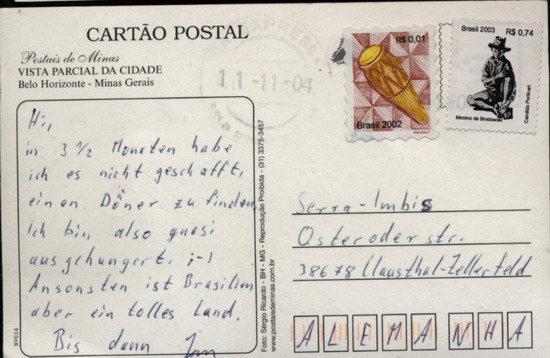 CARTÃO POSTAL
Postais de Minas
VISTA PARCIAL DA CIDADE
Belo Horizonte - Minas Gerais
11-11-04
R$ 0,01
Brasil 2002
Brasil 2003 R$ 0,74
Menino de Brodowski
Candido Portinari
Hi,
in 3 1/2 Monaten habe
ich es nicht geschafft,
einen Döner zu finden
Ich bin also quasi
ausgehungert. ;-)
Ansonsten ist Brasilien
aber ein tolles Land.
Bis dann
Foto: Sérgio Ricardo - BH - MG - Reprodução Proibida - (31) 3375-3457
www.postaisdeminas.com.br
Serra-Imbis
Osteroder str.
38678 Clausthal-Zellerfeld
ALEMANHA